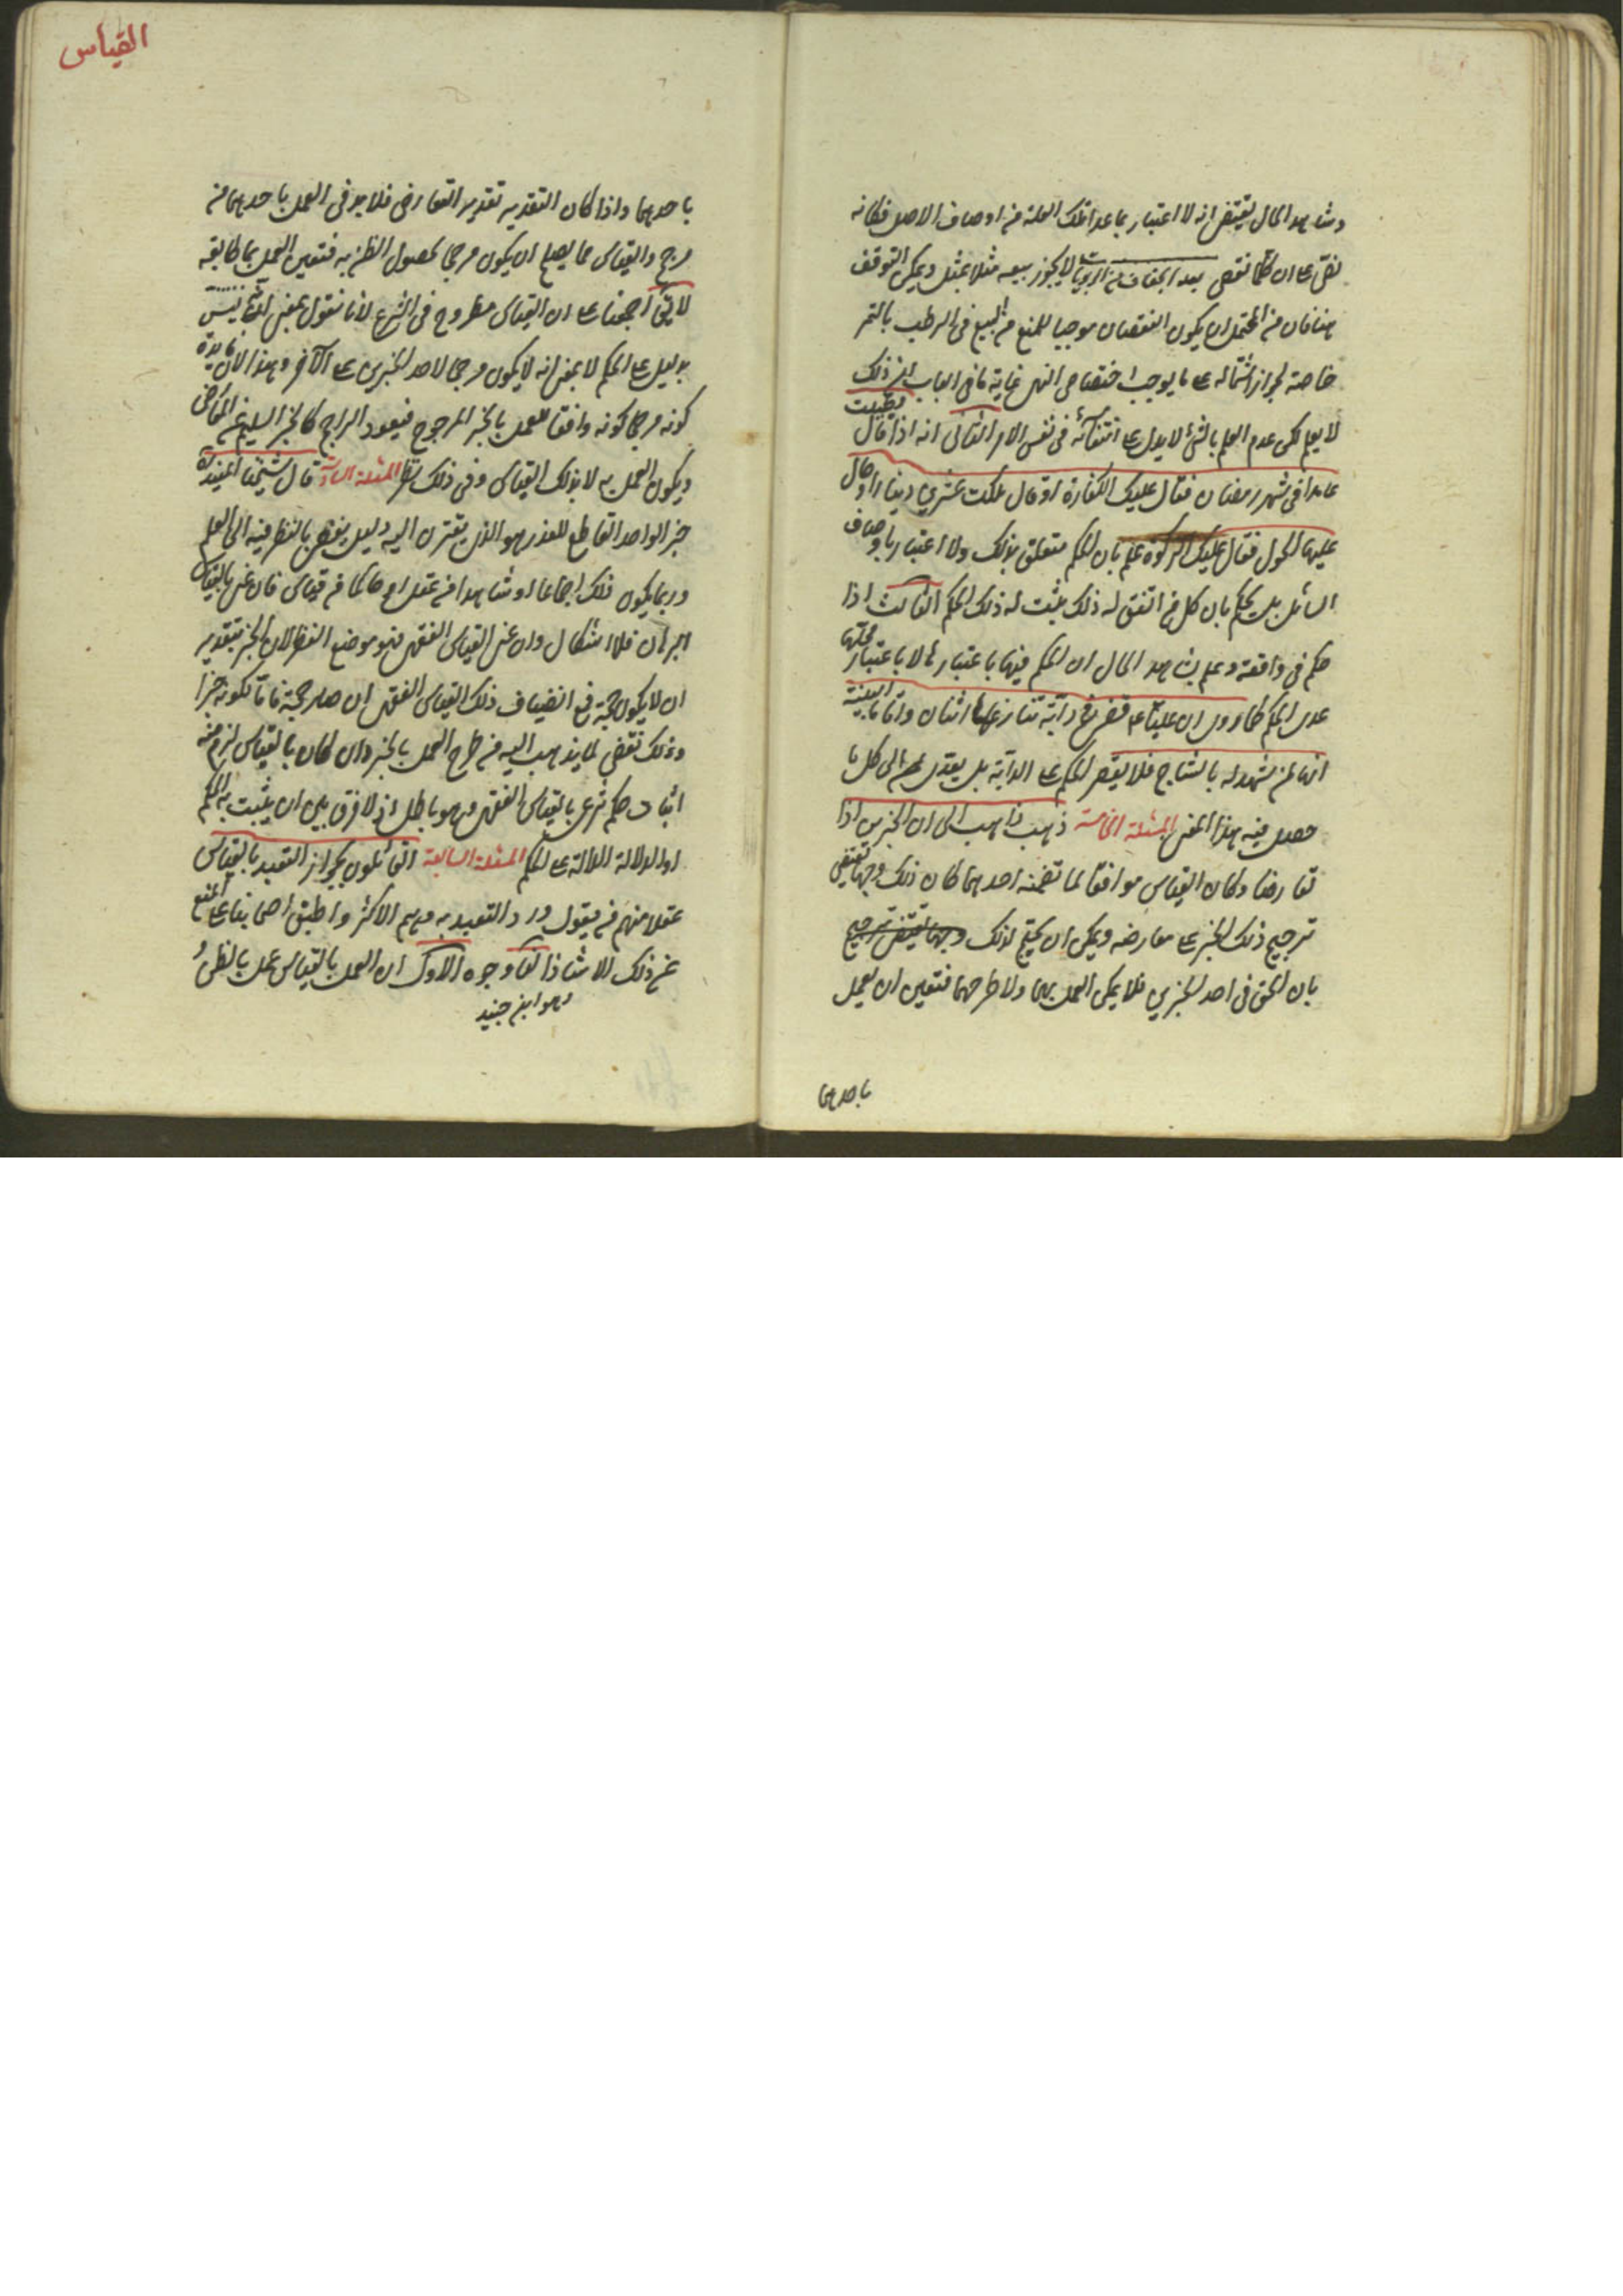 وشاهد الحال يقتضى انه لا اعتبار بما عدا تلك العلة من اوصاف الاصل فكانه
نص على ان كلما نقص بعد الجفاف من الربويات لا يجوز بيعه مثلا بمثل ويمكن التوقف
هنا فان من المحتمل ان يكون النقصان موجبا للمنع من البيع فى الرطب بالتمر
خاصة لجواز اشتماله على ما يوجب اختصاص النهى غاية ما فى الباب ان ذلك
لا يعلم لكن عدم العلم بالشئ لا يدل على انتفائه فى نفس الامر الثانى انه اذا قال
عامدا فى شهر رمضان فقال عليك الكفارة او قال ملكت عشرين دينارا وحال
عليها الحول فقال عليك الزكوة علم بان الحكم متعلق بذلك ولا اعتبار باوصاف
السائل بل يحكم بان كل من اتفق له ذلك يثبت له ذلك الحكم الثالث اذا
حكم فى واقعة وعلم بشاهد الحال ان الحكم فيها باعتبارها لا باعتبار محلها
عدى الحكم كما روى ان عليا ع قضى فى دابة تنازعها اثنان واقاما البينة
انها لمن شهد له بالنتاج فلا يقصر الحكم على الدابة بل يعدى الى كل ما
حصل فيه هذا المعنى المسئلة الخامسة ذهب ذاهب الى ان الخبرين اذا
تعارضا وكان القياس موافقا لما تضمنه احدهما كان ذلك وجها يقتضى
ترجيح ذلك الخبر على معارضه ويمكن ان يحتج لذلك وجها يقتضى ترجيح
بان الحق فى احد الخبرين فلا يمكن العمل بهما ولا طرحهما فتعين ان يعمل
باحدهما
القياس
باحدهما واذا كان التقدير تقدير التعارض فلا بد فى العمل باحدهما من
مرجح والقياس مما يصلح ان يكون مرجحا لحصول الظن به فتعين العمل بما طابقه
لا يقال اجمعنا على ان القياس مطروح فى الشرع لانا نقول بمعنى انه ليس
بدليل على الحكم لا بمعنى انه لا يكون مرجحا لاحد الخبرين على الآخر وهذا لان فايدة
كونه مرجحا كونه دافعا للعمل بالخبر المرجوح فيعود الراجح كالخبر السليم عن المعارض
ويكون العمل به لا بذلك القياس وفى ذلك نظر المسئلة السادسة قال شيخنا المفيد ره
خبر الواحد القاطع للعذر هو الذى يقترن اليه دليل يفضى بالنظر فيه الى العلم
وربما يكون ذلك اجماعا او شاهدا من عقل او حاكما من قياس فان عنى بالقياس
البرهان فلا اشكال وان عنى القياس الفقهى فهو موضع النظر لان الخبر بتقدير
ان لا يكون حجة فمع انضياف ذلك القياس الفقهى ان صار حجة فاما لكونه خبرا
وذلك نقض لما يذهب اليه من طرح العمل بالخبر وان كان بالقياس لزم منه
اثبات حكم شرعى بالقياس الفقهى وهو باطل اذ لا فرق بين ان يثبت به الحكم
او الدلالة الدالة على الحكم المسئلة السابعة القائلون بجواز التعبد بالقياس
عقلا منهم من يقول ورد التعبد به وهم الاكثر واطبق اصحابنا على المنع
من ذلك الا شاذا لنا وجوه الاول ان العمل بالقياس عمل بالظن
وهو ابن جنيد